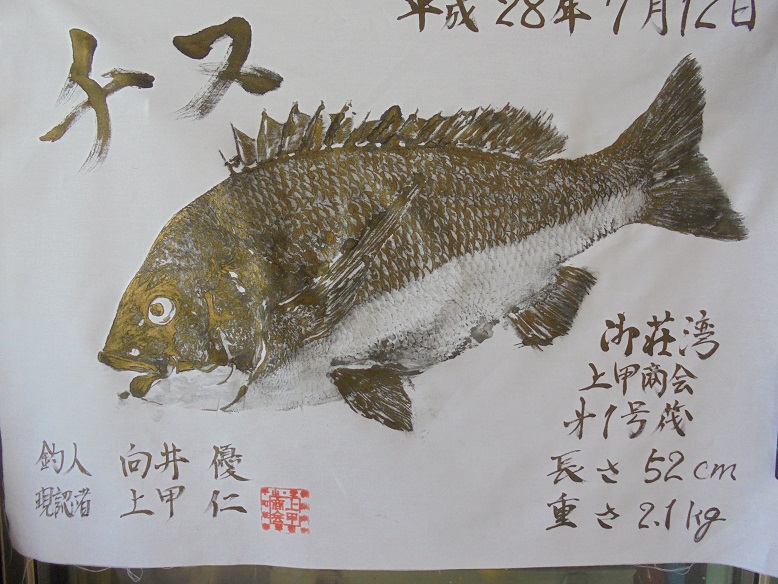 平成28年7月12日
チヌ
御荘湾
上甲商会
才1号筏
長さ52cm
重さ2.1kg
釣人 向井 優
現認者 上甲 仁